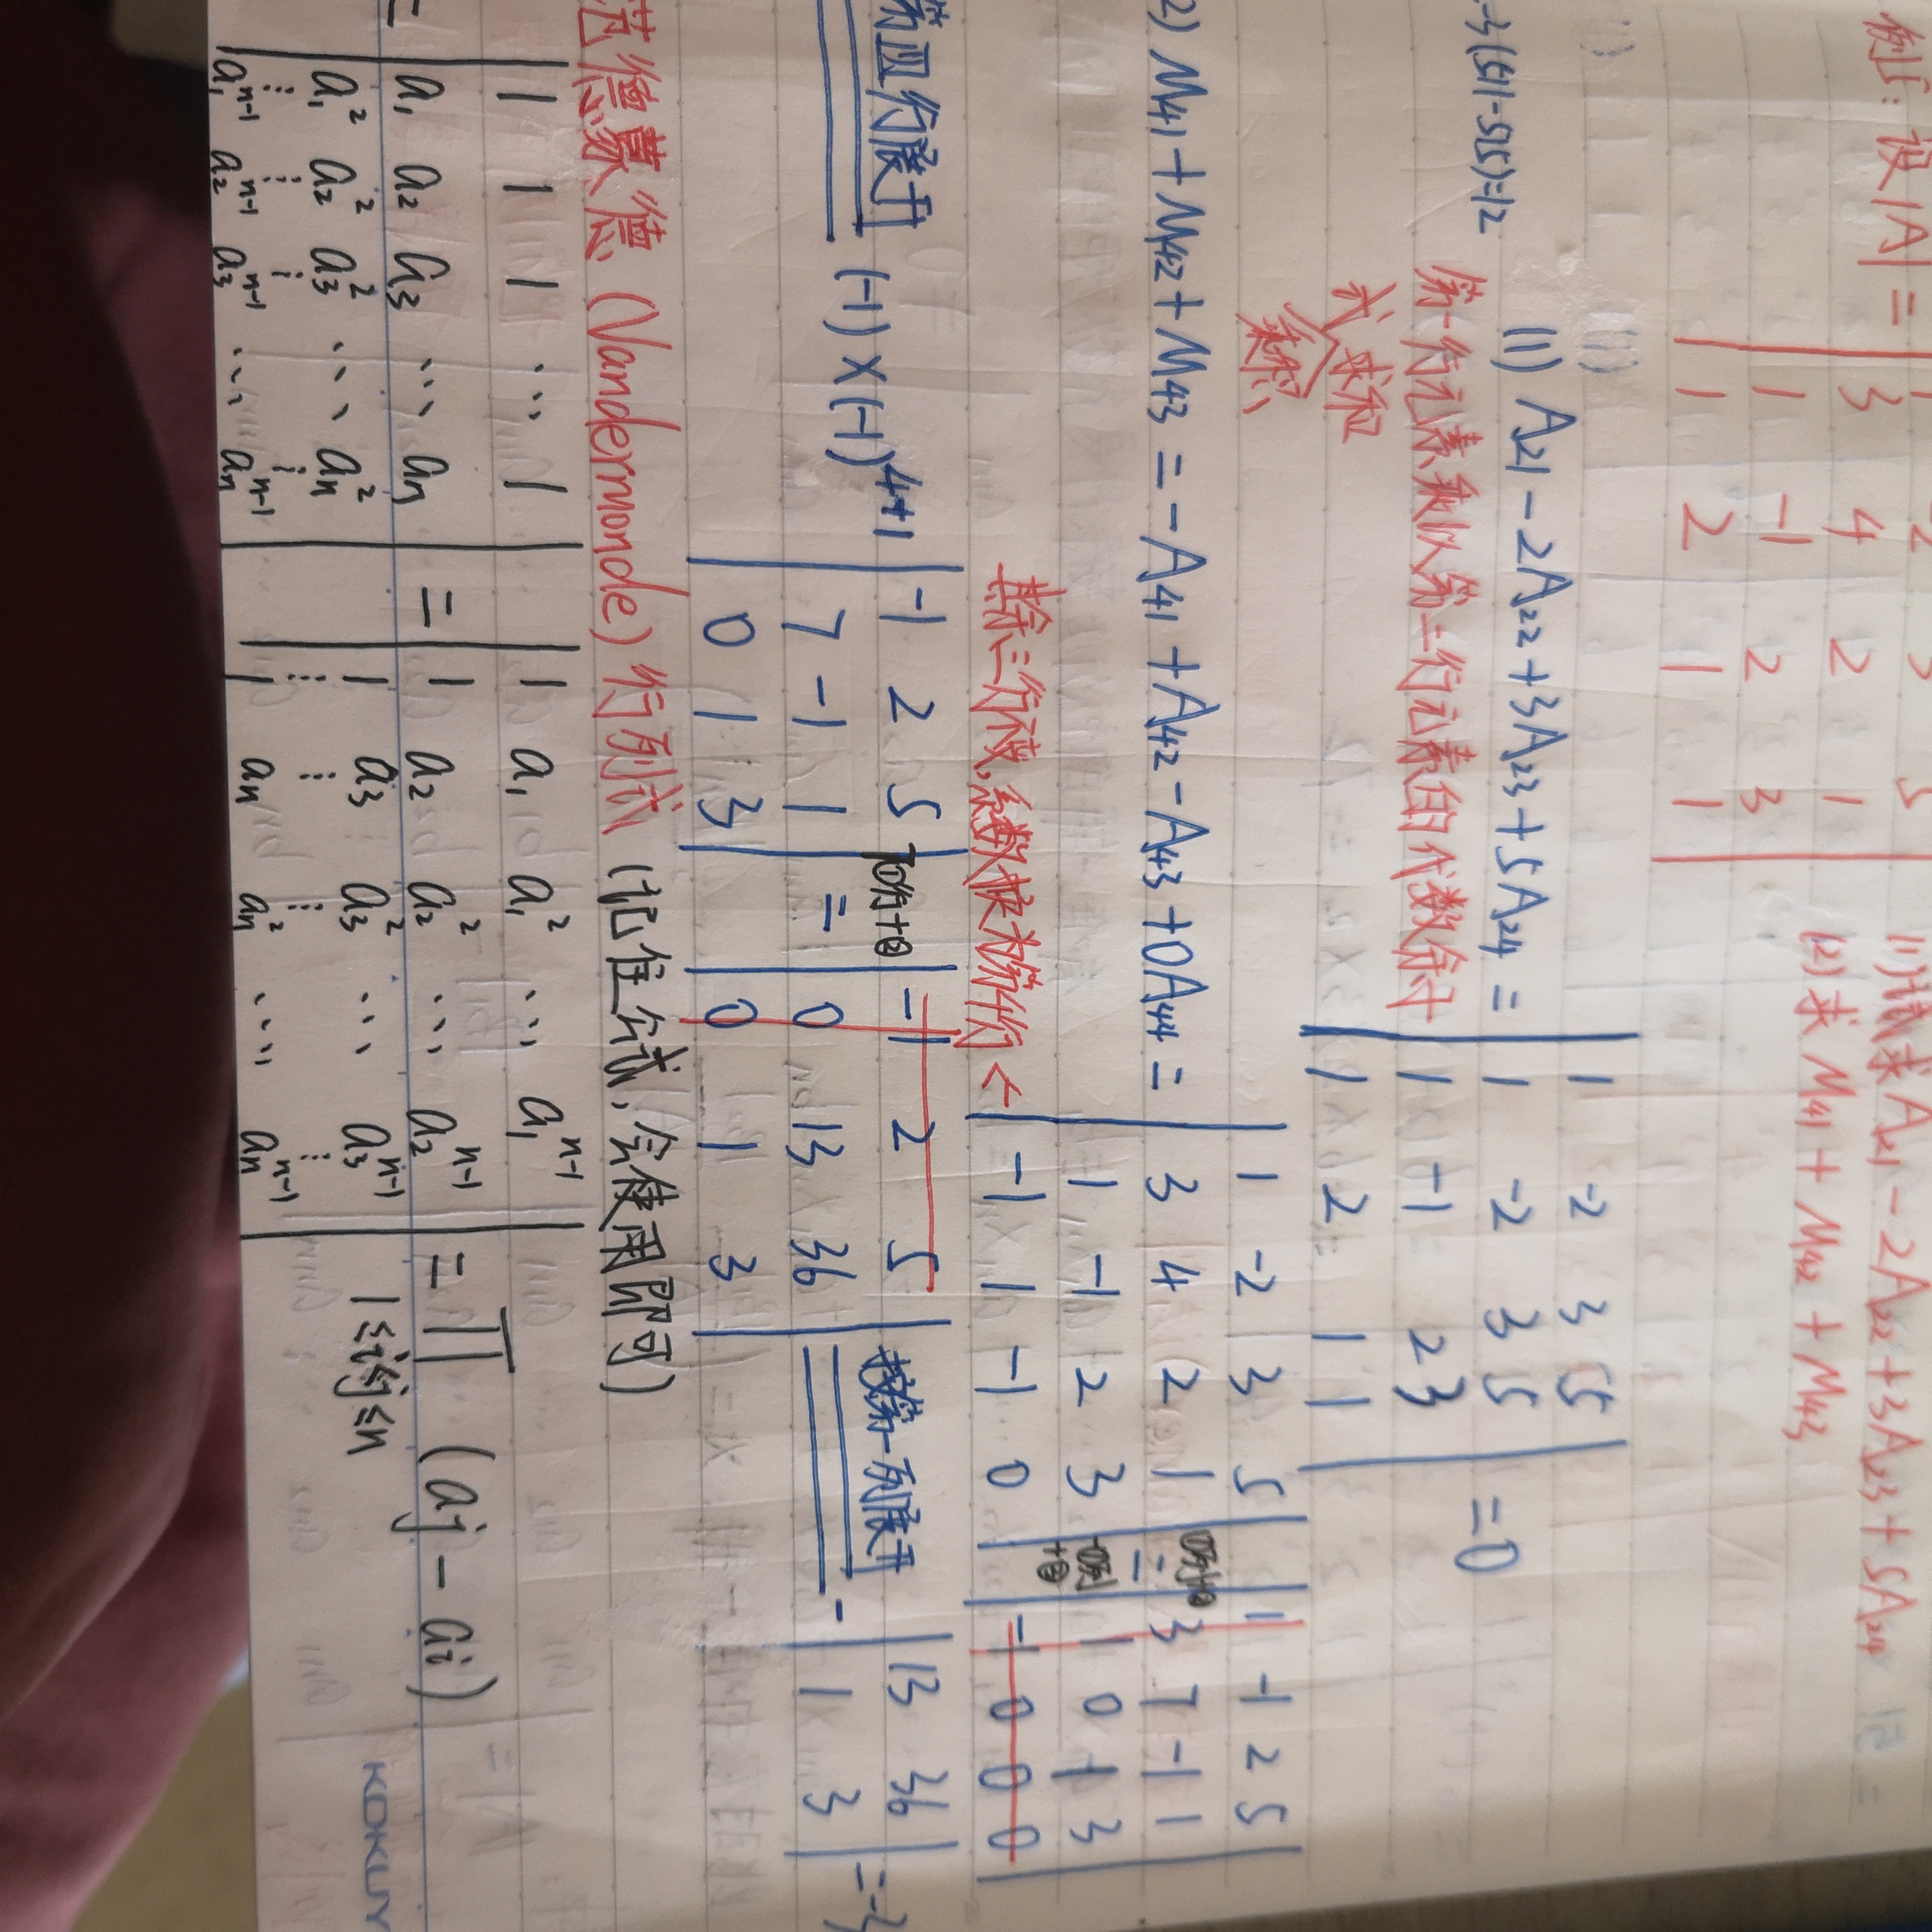 例5: 设|A| = | 1 -2 3 5
3 4 2 1
1 -1 2 3
1 2 1 1 |
(1)试求A21-2A22+3A23+5A24
(2)求 M41+M42+M43
(1) A21-2A22+3A23+5A24 = | 1 -2 3 5
1 -2 3 5
1 -1 2 3
1 2 1 1 | =0
-3(511-515)=12
第一行元素乘以第二行元素的代数余子
式 求和
乘积
2) M41+M42+M43 = -A41+A42-A43+0A44 = | 1 -2 3 5
3 4 2 1
1 -1 2 3
-1 1 -1 0 |
= | 1 -1 2 5
3 7 -1 1
1 0 1 3
-1 0 0 0 |
其余三行不变,系数换为第4行
第四行展开 (-1)×(-1)^4+1 | -1 2 5
7 -1 1
0 1 3 |
= | -1 2 5
0 13 36
0 1 3 |
按第一列展开 - | 13 36
1 3 | =-3
范德蒙德 (Vandermonde) 行列式 (记住公式,会使用即可)
= | 1 1 1 ⋯ 1
a1 a2 a3 ⋯ an
a1² a2² a3² ⋯ an²
⋮ ⋮ ⋮ ⋮
a1^n-1 a2^n-1 a3^n-1 ⋯ an^n-1 |
= | 1 a1 a1² ⋯ a1^n-1
1 a2 a2² ⋯ a2^n-1
1 a3 a3² ⋯ a3^n-1
⋮ ⋮ ⋮ ⋮
1 an an² ⋯ an^n-1 |
= ∏ (aj - ai)
1≤i<j≤n
KOKUY